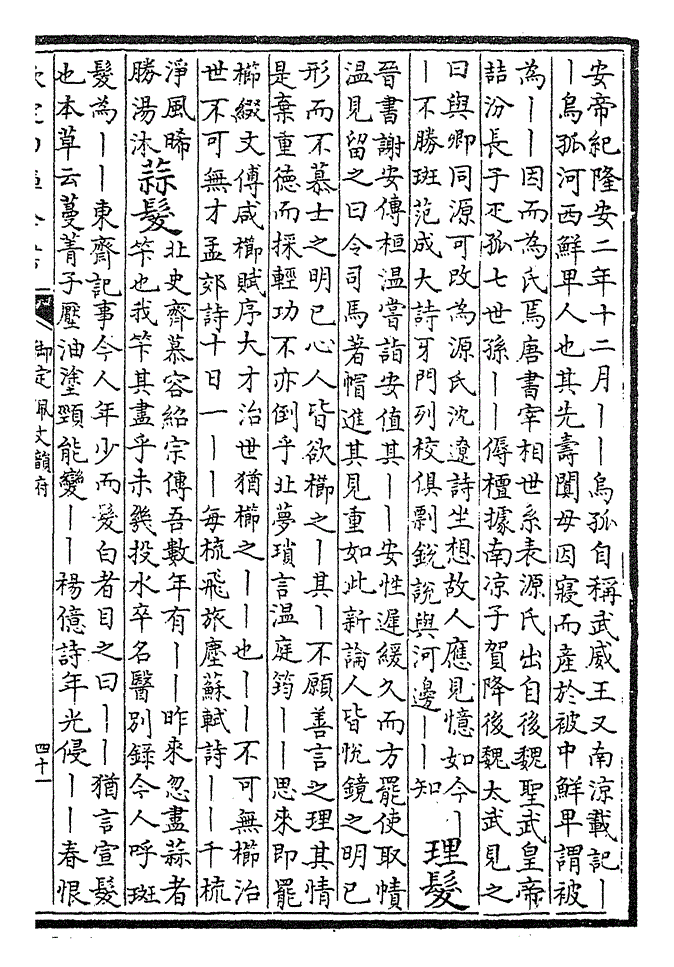 安帝紀隆安二年十二月丨丨烏孤自稱武威王又南涼載記丨
丨烏孤河西鮮卑人也其先壽闐母因寢而產於被中鮮卑謂被
為丨丨因而為氏焉唐書宰相世系表源氏出自後魏聖武皇帝
詰汾長子疋孤七世孫丨丨傉檀據南凉子賀降後魏太武見之
曰與卿同源可改為源氏沈遼詩坐想故人應見憶如今丨
丨不勝斑范成大詩牙門列校俱剽銳說與河邊丨丨知
理髮
晉書謝安傳桓温嘗詣安值其丨丨安性遲緩久而方罷使取幘
温見留之曰令司馬著帽進其見重如此新論人皆悅鏡之明已
形而不慕士之明已心人皆欲櫛之丨其丨不願善言之理其情
是棄重徳而採輕功不亦倒乎北夢瑣言温庭筠丨丨思來即罷
櫛綴文傅咸櫛賦序大才治世猶櫛之丨丨也丨丨不可無櫛治
世不可無才孟郊詩十日一丨丨每梳飛旅塵蘇軾詩丨丨千梳
淨風晞
勝湯沐
蒜髮
北史齊慕容紹宗傳吾數年有丨丨昨來忽盡蒜者
筭也我筭其盡乎未幾投水卒名醫別錄今人呼斑
髮為丨丨東齋記事今人年少而髮白者目之曰丨丨猶言宣髮
也本草云蔓菁子壓油塗頭能變丨丨楊億詩年光侵丨丨春恨
御定佩文韻府
四十一